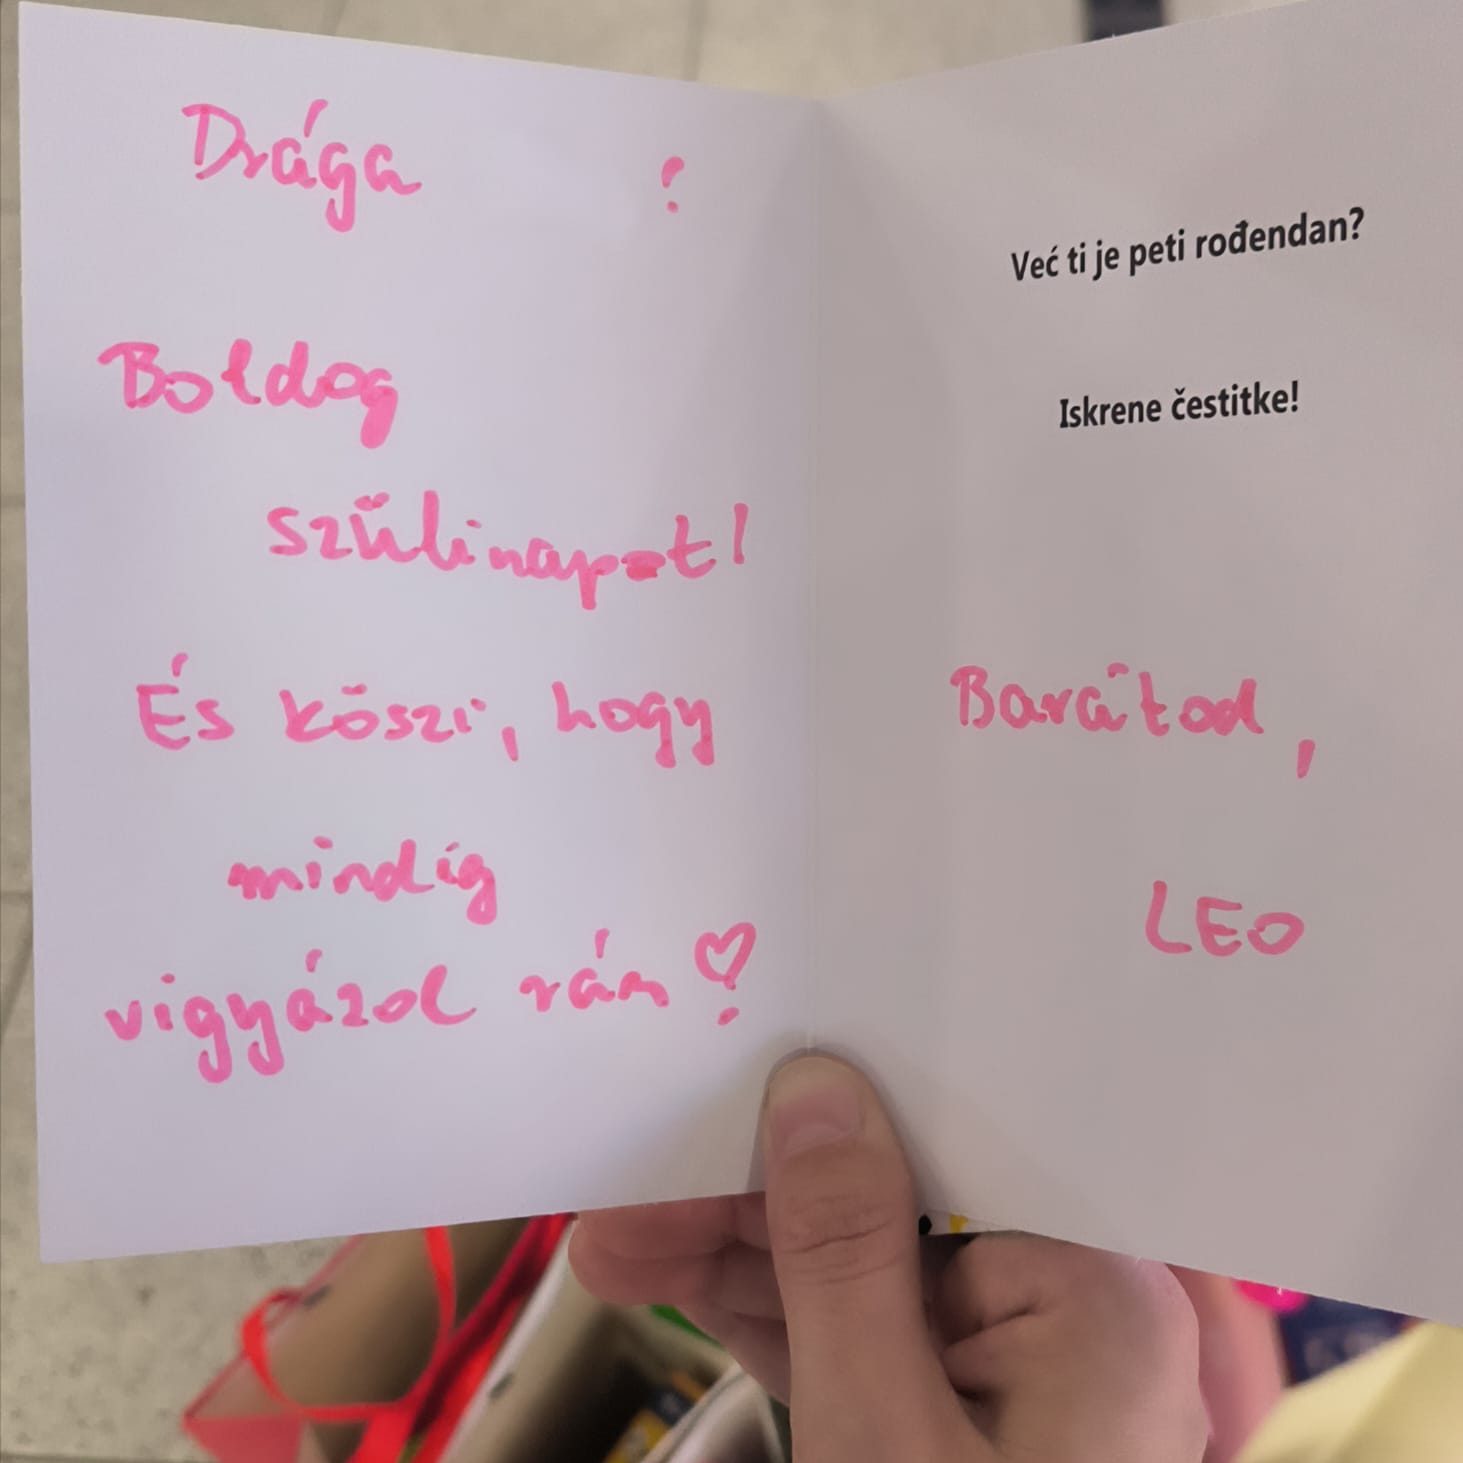 Drága !
Boldog
szülinapot!
És köszi, hogy
mindig
vigyázol rám
Već ti je peti rođendan?
Iskrene čestitke!
Barátod,
LEO